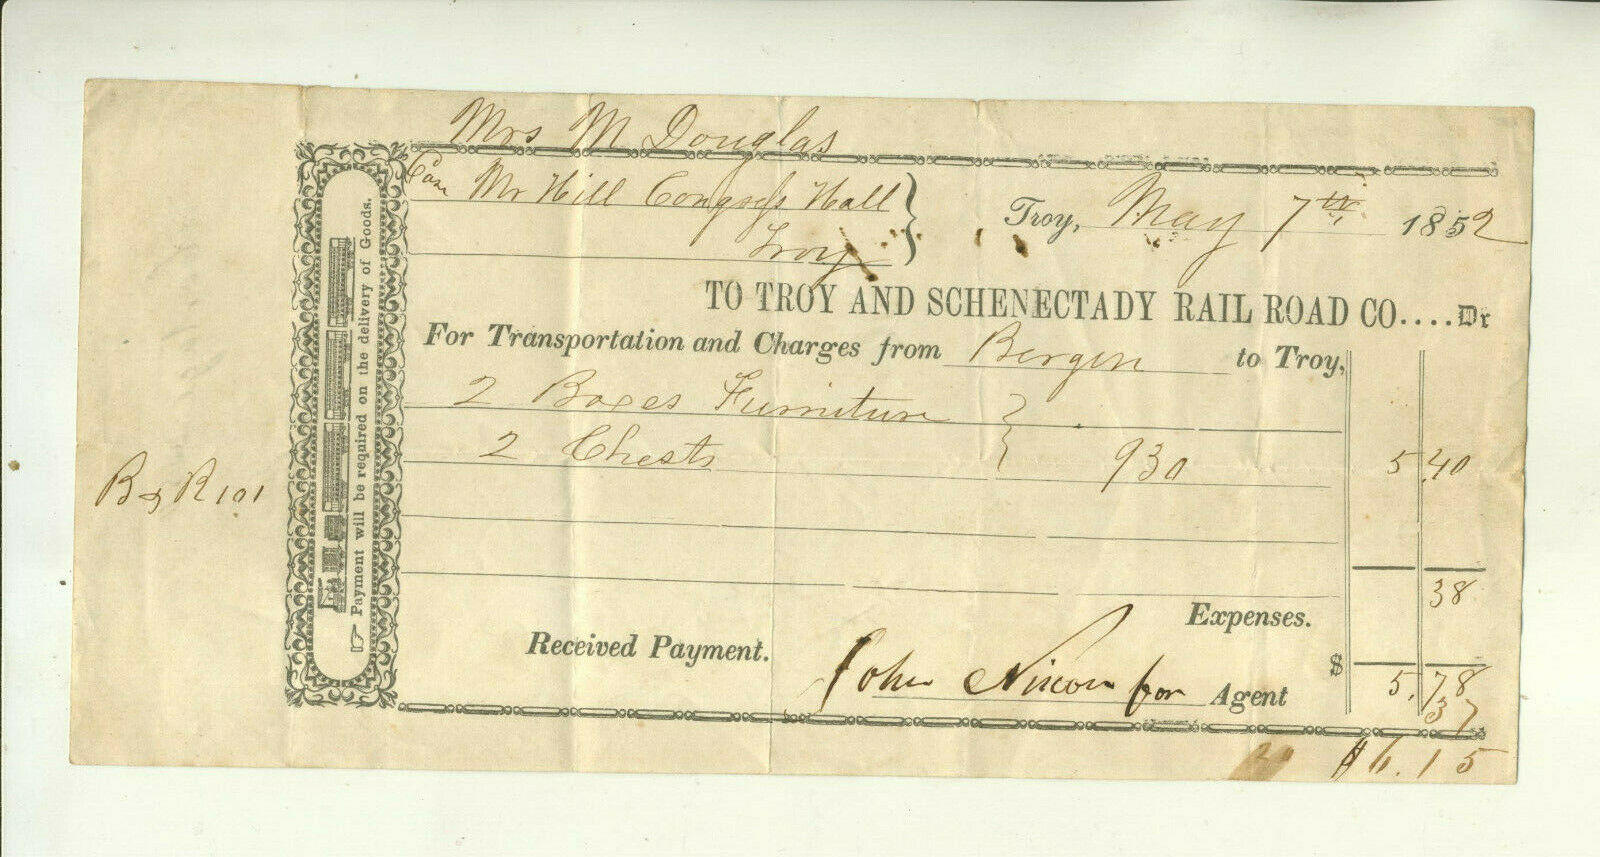 Mrs M Douglas
Care Mr Hill Congress Hall
Troy
Troy, May 7th 1852
TO TROY AND SCHENECTADY RAIL ROAD CO....Dr
For Transportation and Charges from Bergen to Troy,
2 Boxes Furniture
2 Chests } 930 5.40
Expenses. 38
Received Payment. $ 5.78
John Nixon for Agent
37
$6.15
☞ Payment will be required on the delivery of Goods.
B & R 101